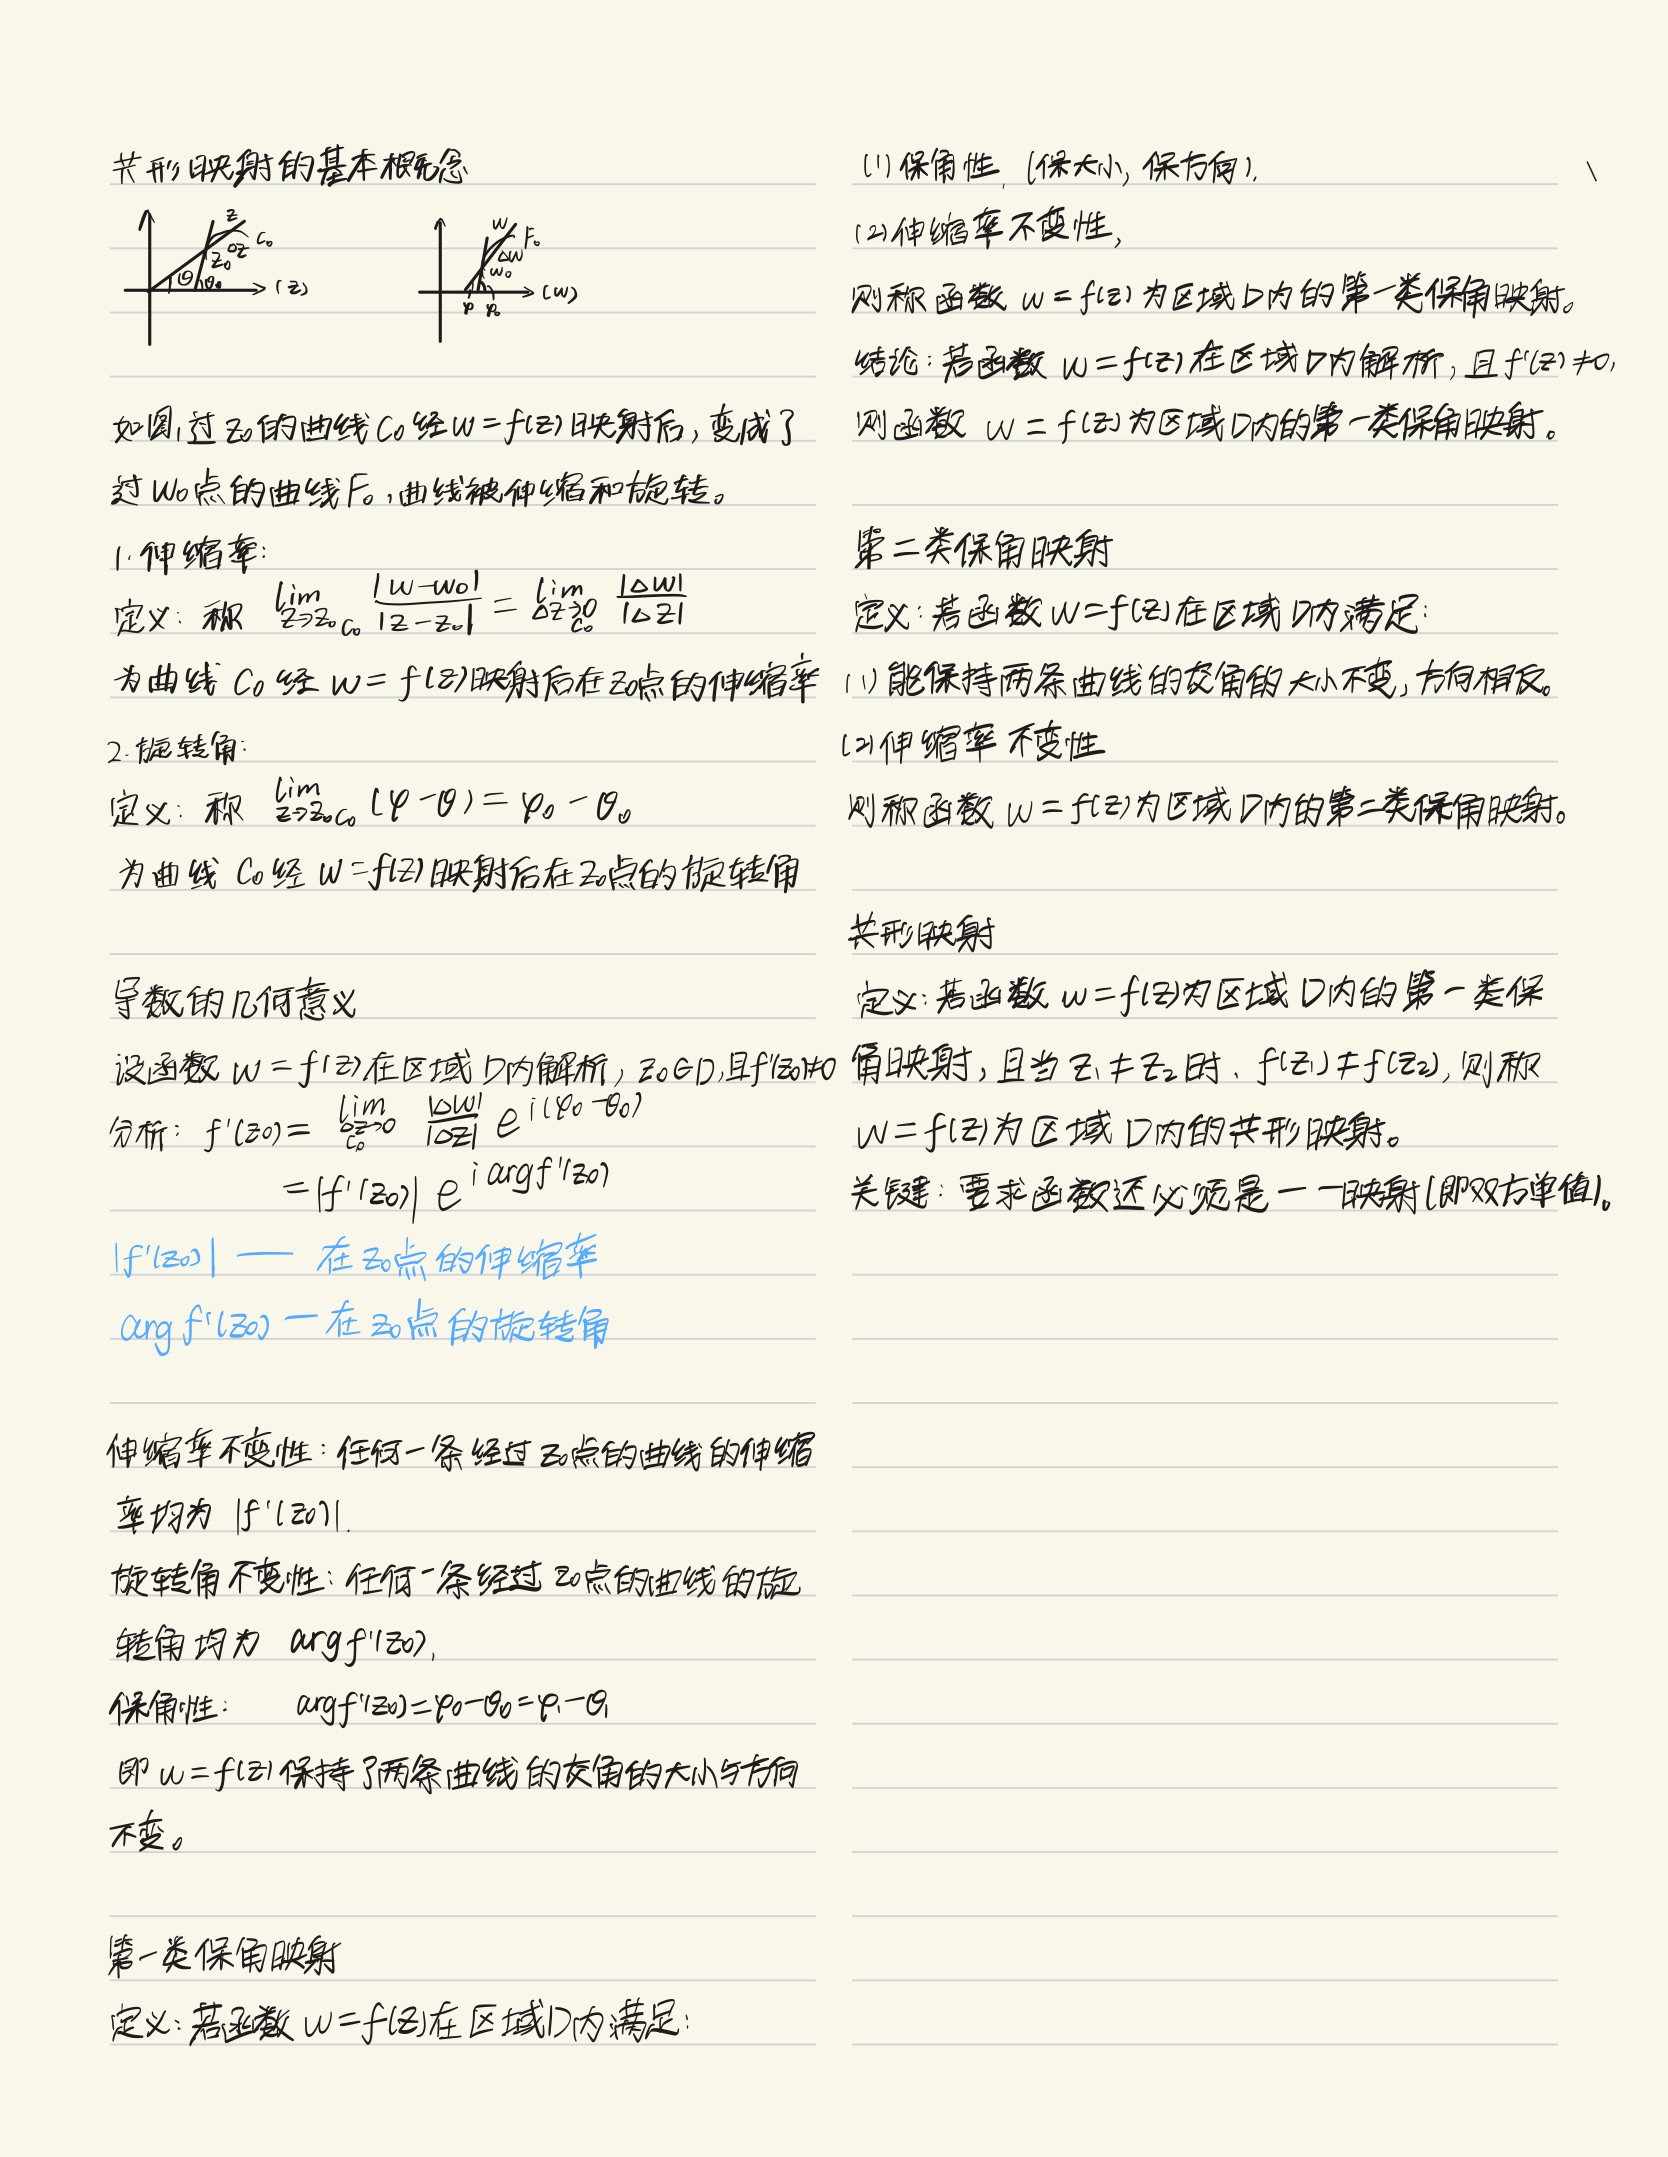 共形映射的基本概念
z
C₀
Δz
z₀
θ θ₀
(z)
w
Γ₀
Δw
w₀
(w)
φ φ₀
如图,过z₀的曲线C₀经w=f(z)映射后,变成了
过w₀点的曲线Γ₀,曲线被伸缩和旋转。
1.伸缩率:
定义:称 lim_{z→z₀ C₀} |w-w₀|/|z-z₀| = lim_{Δz→0 C₀} |Δw|/|Δz|
为曲线C₀经w=f(z)映射后在z₀点的伸缩率
2.旋转角:
定义:称 lim_{z→z₀ C₀} (φ-θ)=φ₀-θ₀
为曲线C₀经w=f(z)映射后在z₀点的旋转角
导数的几何意义
设函数w=f(z)在区域D内解析,z₀∈D,且f'(z₀)≠0
分析:f'(z₀)= lim_{Δz→0 C₀} |Δw|/|Δz| e^{i(φ₀-θ₀)}
=|f'(z₀)| e^{i arg f'(z₀)}
|f'(z₀)| — 在z₀点的伸缩率
arg f'(z₀) — 在z₀点的旋转角
伸缩率不变性:任何一条经过z₀点的曲线的伸缩
率均为 |f'(z₀)|.
旋转角不变性:任何一条经过z₀点的曲线的旋
转角均为 arg f'(z₀),
保角性: arg f'(z₀)=φ₀-θ₀=φ₁-θ₁
即w=f(z)保持了两条曲线的交角的大小与方向
不变。
第一类保角映射
定义:若函数w=f(z)在区域D内满足:
(1)保角性,(保大小,保方向).
(2)伸缩率不变性,
则称函数w=f(z)为区域D内的第一类保角映射。
结论:若函数w=f(z)在区域D内解析,且f'(z)≠0,
则函数w=f(z)为区域D内的第一类保角映射。
第二类保角映射
定义:若函数w=f(z)在区域D内满足:
(1)能保持两条曲线的交角的大小不变,方向相反。
(2)伸缩率不变性
则称函数w=f(z)为区域D内的第二类保角映射。
共形映射
定义:若函数w=f(z)为区域D内的第一类保
角映射,且当z₁≠z₂时,f(z₁)≠f(z₂),则称
w=f(z)为区域D内的共形映射。
关键:要求函数还必须是一一映射(即双方单值)。